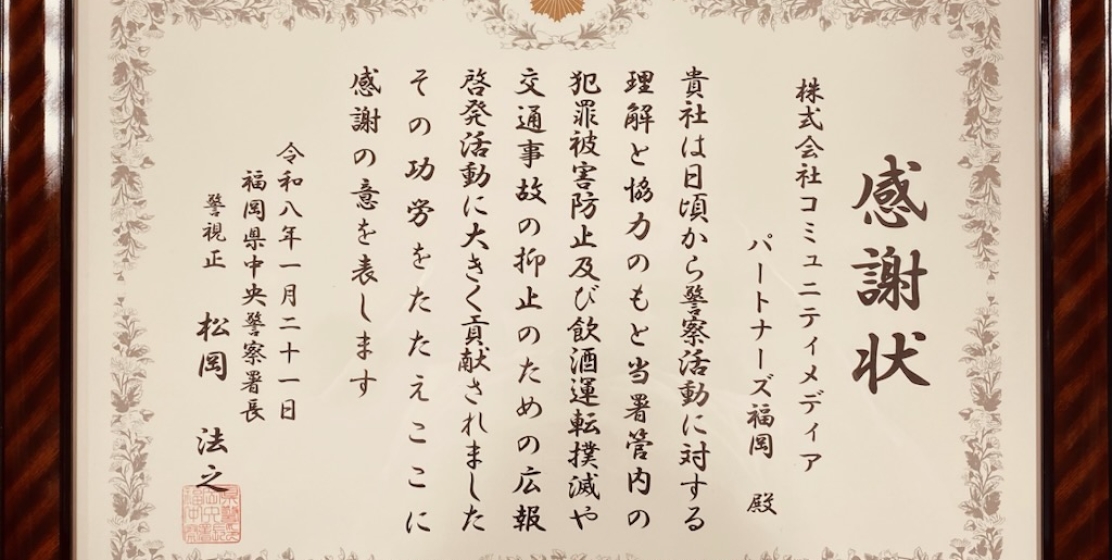 感謝状
株式会社コミュニティメディア
パートナーズ福岡 殿
貴社は日頃から警察活動に対する
理解と協力のもと当署管内の
犯罪被害防止及び飲酒運転撲滅や
交通事故の抑止のための広報
啓発活動に大きく貢献されました
その功労をたたえここに
感謝の意を表します
令和八年一月二十一日
福岡県中央警察署長
警視正 松岡 法之